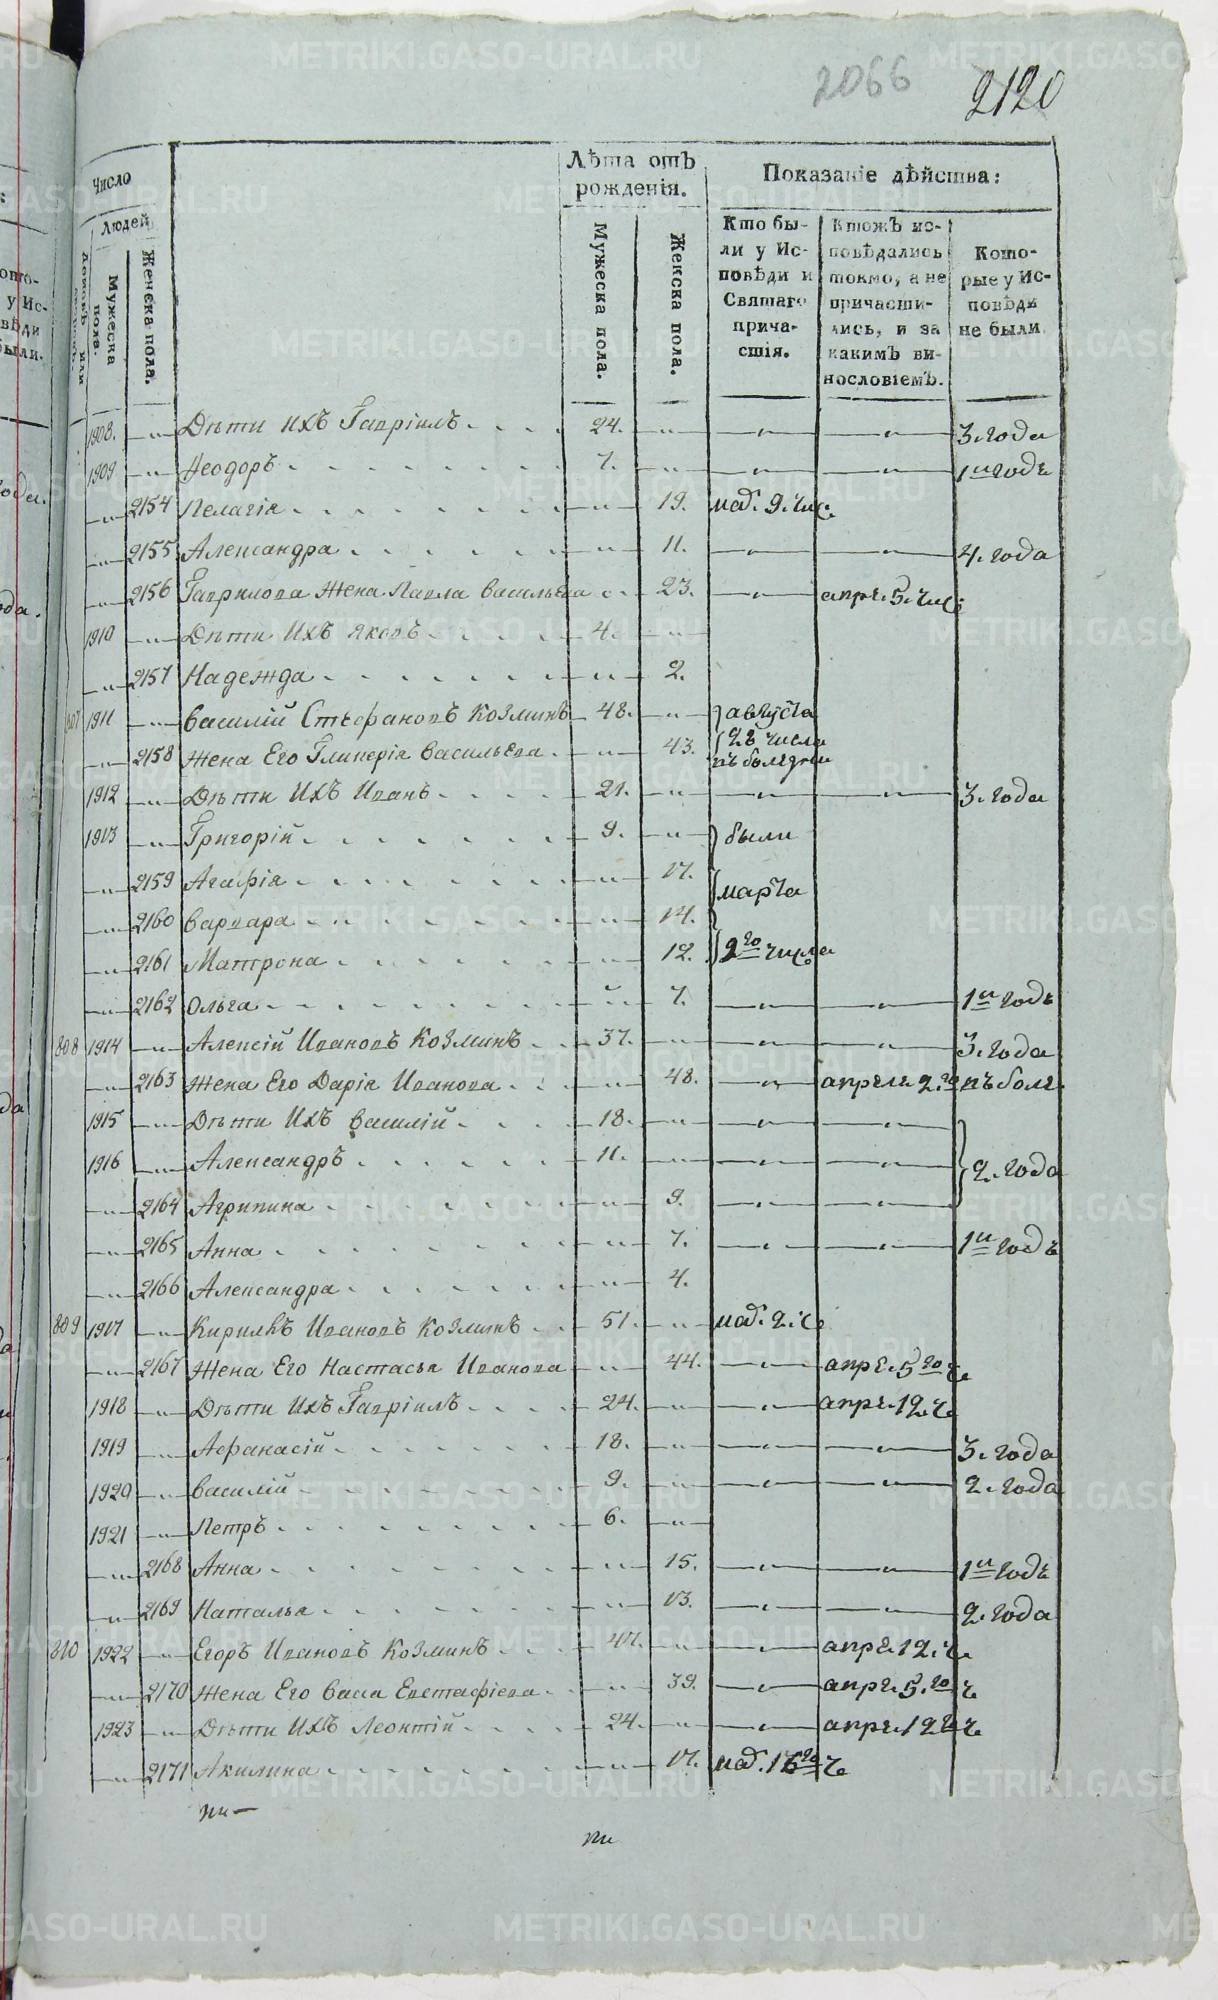 2066 2120
Число
Людей
Мужеска пола.
Женска пола.
Лѣта отъ рожденія.
Мужеска пола.
Женска пола.
Показаніе дѣйства:
Кто были у Исповѣди и Святаго причастія.
Ктожъ исповѣдались токмо, а не причастились, и за какимъ винословіемъ.
Которые у Исповѣди не были.
1908. —„— Дѣти ихъ Гавріилъ 24. —„— —„— —„— 3. года
1909 —„— Ѳеодоръ 7. —„— —„— —„— 1й годъ
—„— 2154 Пелагія —„— 19. маѣ. 9. чис.
—„— 2155 Александра —„— 11. —„— —„— 4. года
—„— 2156 Гаврилова Жена Павла Васильева 23. —„— апрѣ. 5. чис
1910 —„— Дѣти Ихъ Яковъ 4. —„—
—„— 2157 Надежда —„— 2.
807 1911 —„— Василій Стефановъ Козминъ 48. —„— августа
—„— 2158 Жена Его Гликерія Васильева —„— 43. 22 числа
въ болѣзни
1912 —„— Дѣти Ихъ Иванъ 21. —„— —„— —„— 3. года
1913 —„— Григорій 9. —„— были
—„— 2159 Агафія —„— 17.
марта
—„— 2160 Варвара —„— 14.
—„— 2161 Матрона —„— 12. 2го числа
—„— 2162 Ольга —„— 7. —„— —„— 1й годъ
808 1914 —„— Алексій Ивановъ Козминъ 37. —„— —„— —„— 3. года
—„— 2163 Жена Его Дарія Иванова —„— 48. —„— апреля 2.го въ боле.
1915 —„— Дѣти Ихъ Василій 18. —„— —„— —„—
1916 —„— Александръ 11. —„— —„— —„— 2. года
—„— 2164 Агрипина —„— 9. —„— —„—
—„— 2165 Анна —„— 7. —„— —„— 1й годъ
—„— 2166 Александра —„— 4.
809 1917 —„— Кирилъ Ивановъ Козминъ 51. —„— маѣ. 2. ч
—„— 2167 Жена Его Настасья Иванова —„— 44. —„— апрѣ. 5го ч
1918 —„— Дѣти Ихъ Гавріилъ 24. —„— —„— апрѣ. 12. ч
1919 —„— Афанасій 18. —„— —„— —„— 3. года
1920 —„— Василій 9. —„— —„— —„— 2. года
1921 —„— Петръ 6. —„—
—„— 2168 Анна —„— 15. —„— —„— 1й годъ
—„— 2169 Наталья —„— 13. —„— —„— 2. года
810 1922 —„— Егоръ Ивановъ Козминъ 47. —„— —„— апрѣ. 12. ч
—„— 2170 Жена Его Васа Евстафіева —„— 39. —„— апрѣ. 5.го ч
1923 —„— Дѣти Ихъ Леонтій 24. —„— —„— апрѣ. 12 ч
—„— 2171 Акилина —„— 17. маѣ. 16го ч